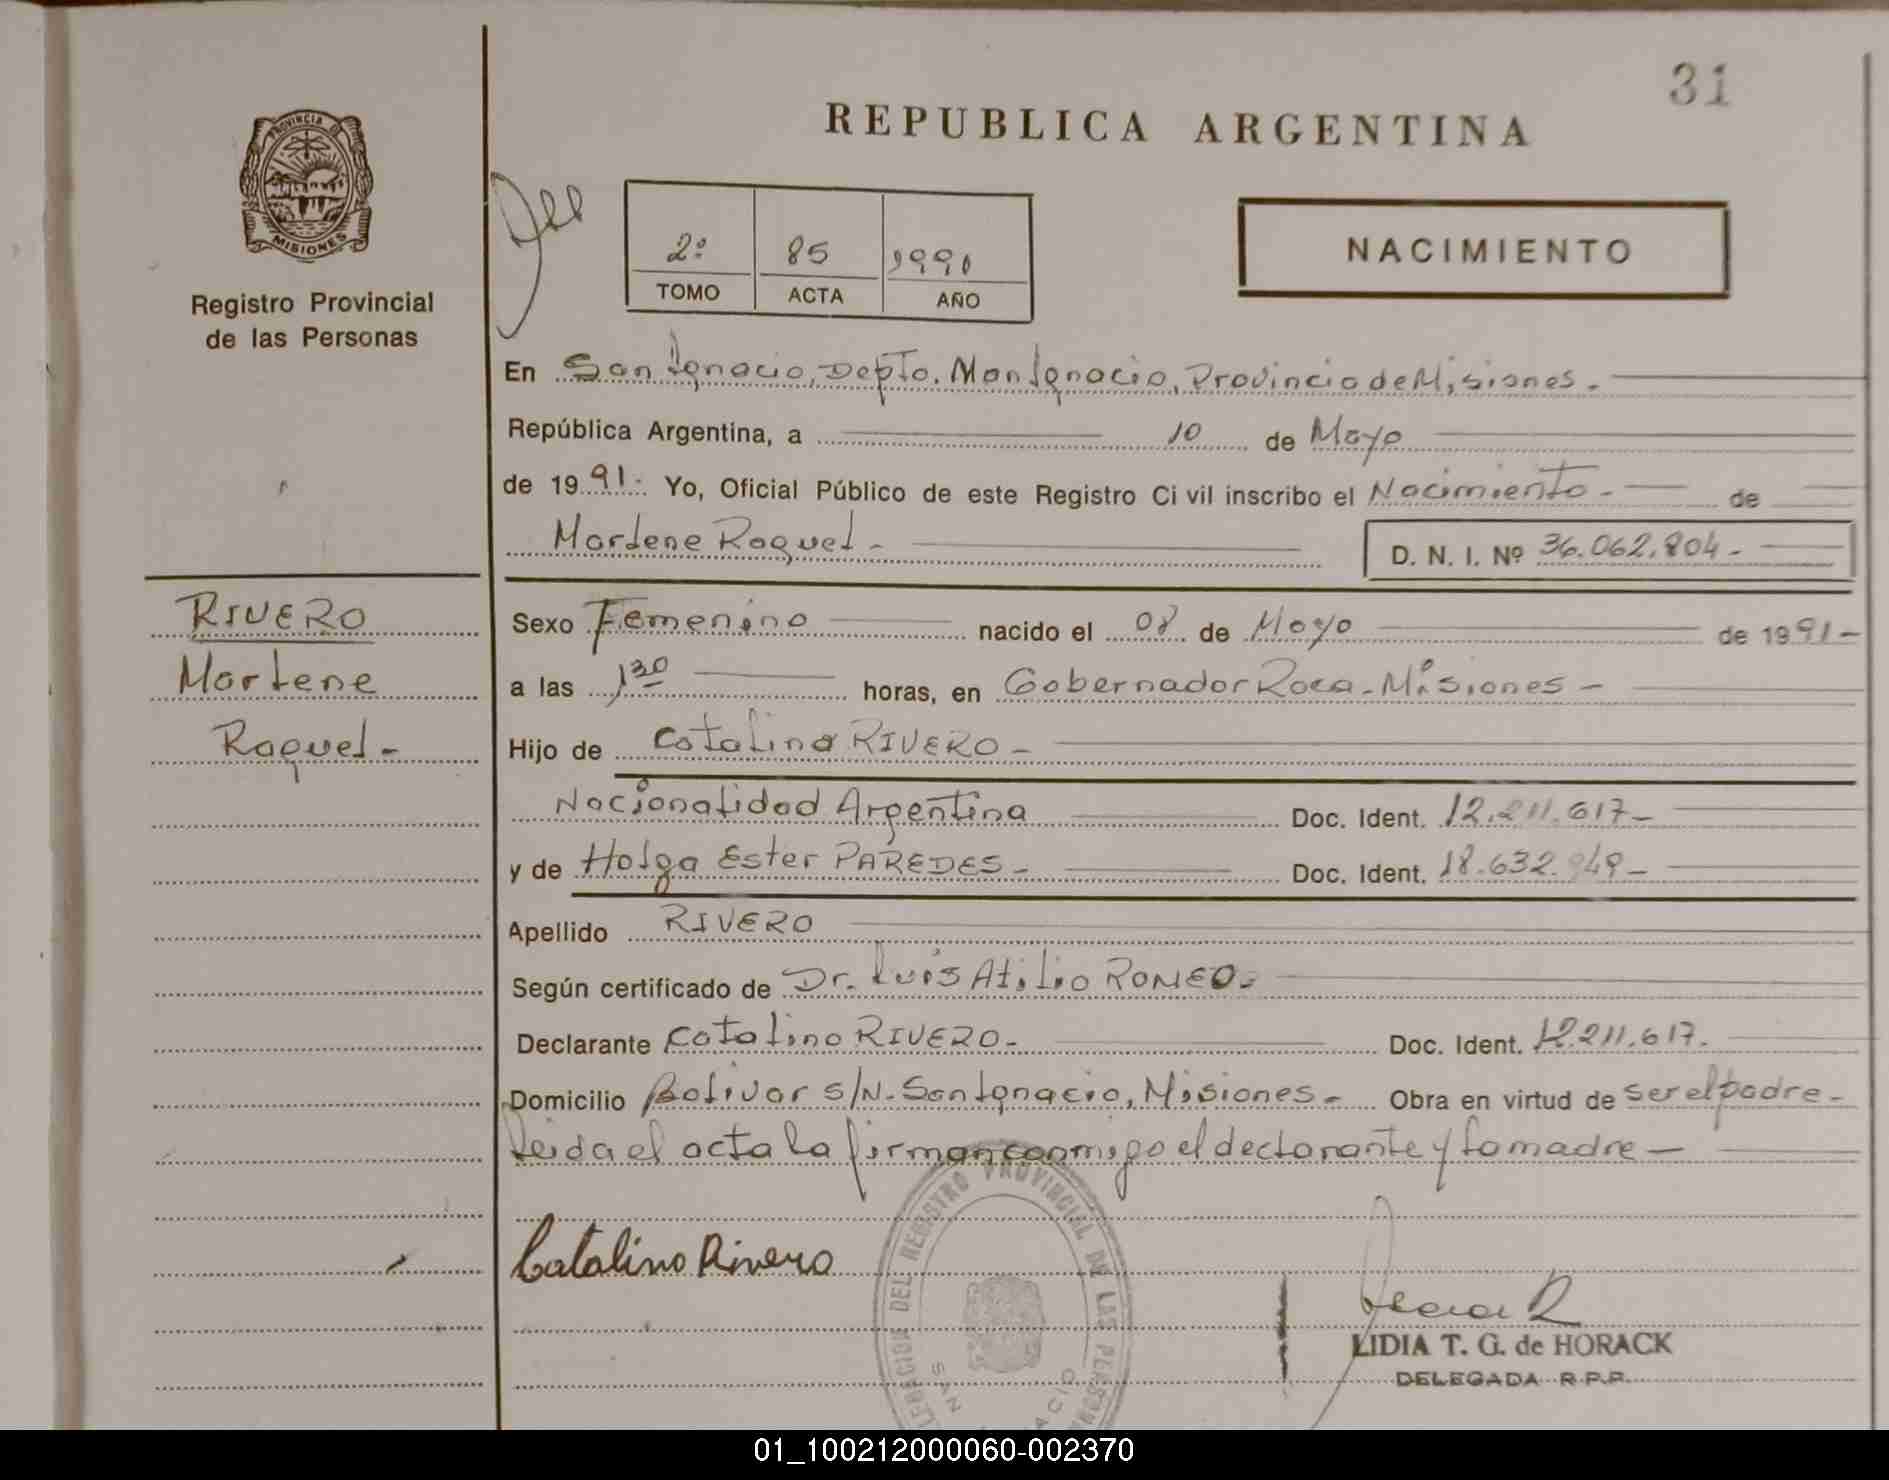 31
REPUBLICA ARGENTINA
PROVINCIA DE
MISIONES
Registro Provincial
de las Personas
2º 85 1991
TOMO ACTA AÑO
NACIMIENTO
En San Ignacio, Depto. San Ignacio, Provincia de Misiones.
República Argentina, a 10 de Mayo
de 1991. Yo, Oficial Público de este Registro Civil inscribo el Nacimiento - de
Marlene Raquel - D. N. I. Nº 36.062.804 -
RIVERO
Marlene
Raquel -
Sexo Femenino nacido el 08 de Mayo de 1991 -
a las 1 30 horas, en Gobernador Roca - Misiones -
Hijo de Catalino RIVERO -
Nacionalidad Argentina Doc. Ident. 12.211.617 -
y de Holga Ester PAREDES - Doc. Ident. 18.632.949 -
Apellido RIVERO
Según certificado de Dr. Luis Atilio ROMEO -
Declarante Catalino RIVERO - Doc. Ident. 12.211.617.
Domicilio Bolivar s/N. San Ignacio, Misiones - Obra en virtud de ser el padre -
Leida el acta la firman conmigo el declarante y la madre -
Catalino Rivero
REGISTRO PROVINCIAL DE LAS
LIDIA T. G. de HORACK
DELEGADA R.P.P.
01_100212000060-002370